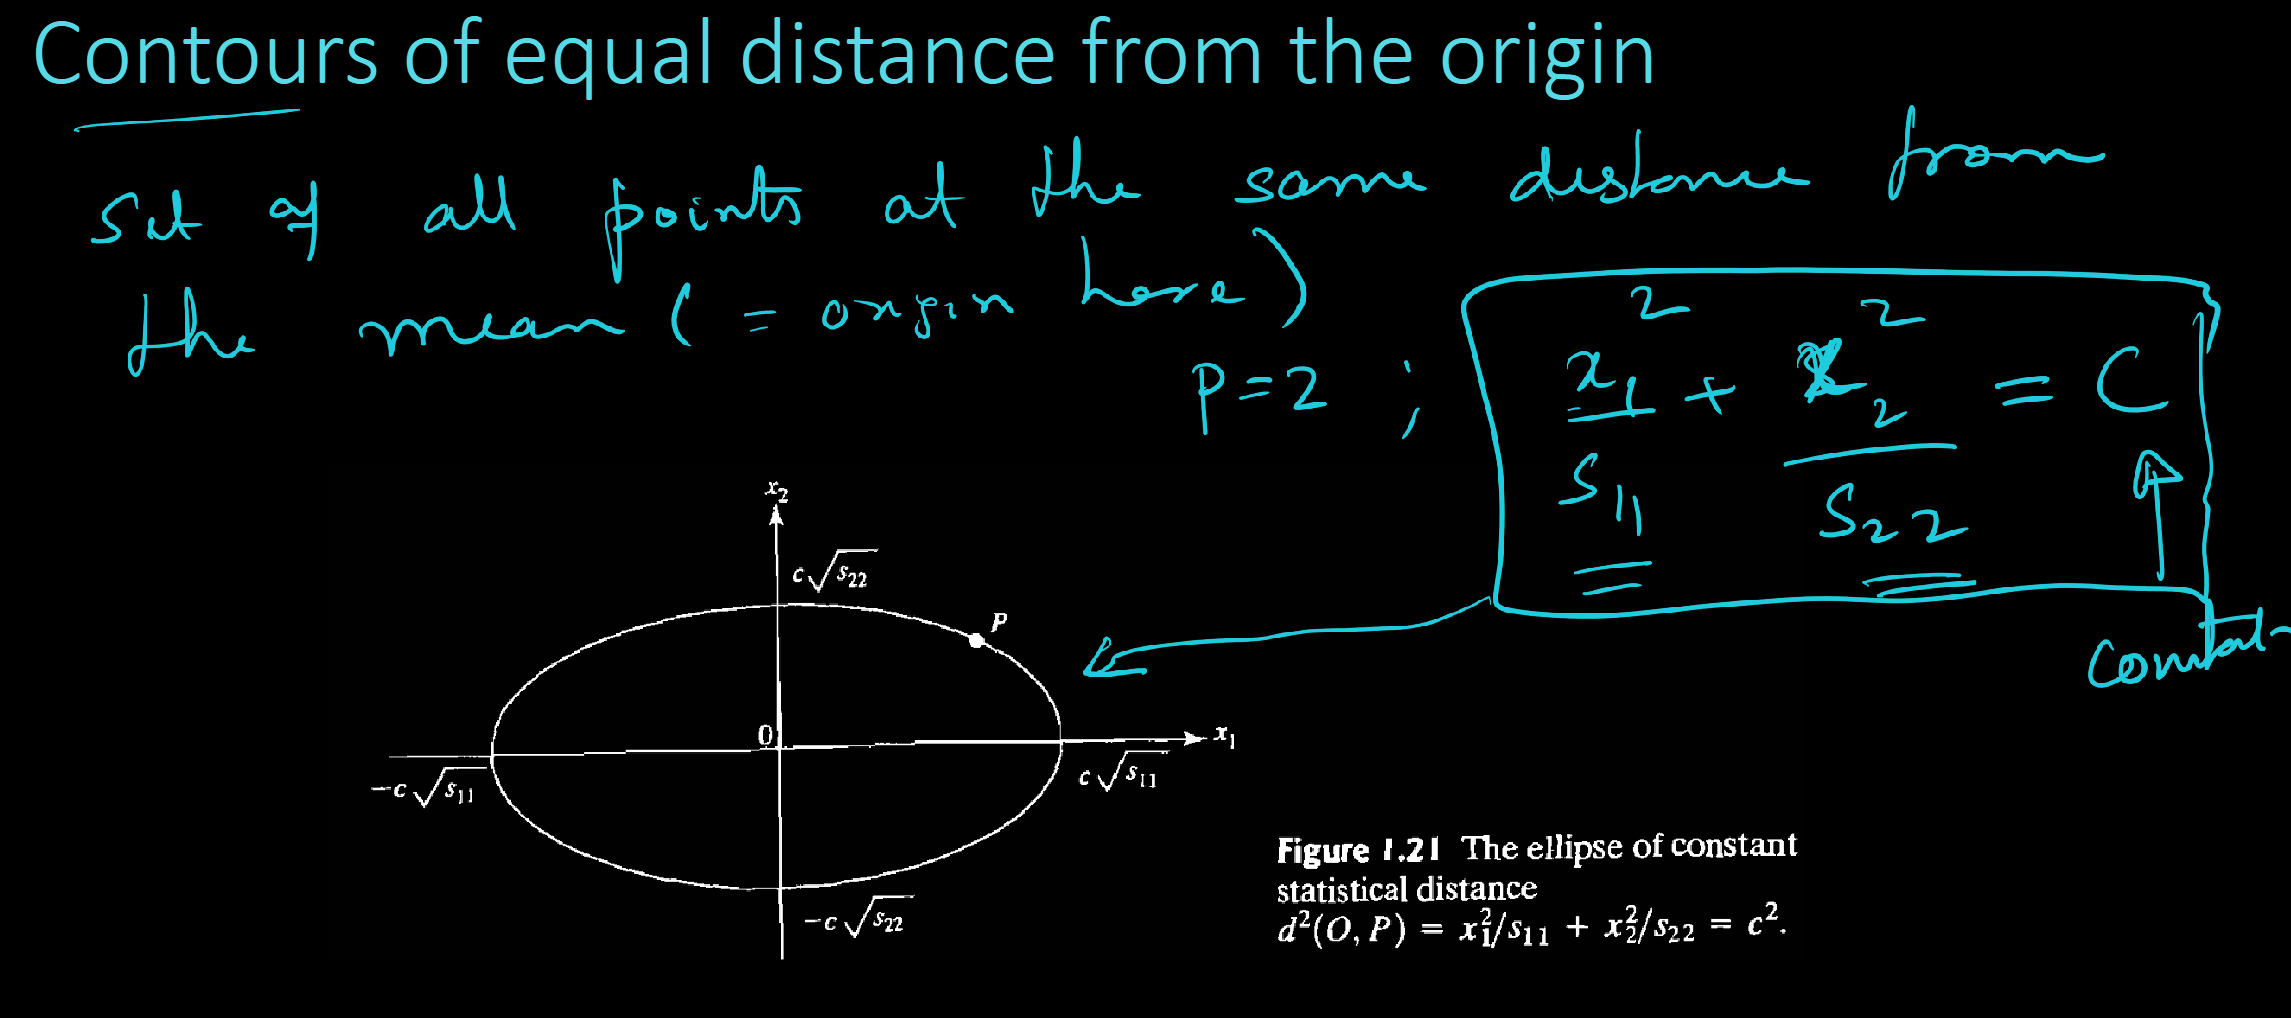 Contours of equal distance from the origin
set of all points at the same distance from
the mean (= origin here)
P=2 ; x₁²/S₁₁ + x₂²/S₂₂ = C
constant
x₂
c√s₂₂
P
0
x₁
-c√s₁₁
c√s₁₁
-c√s₂₂
Figure 1.21 The ellipse of constant
statistical distance
d²(O, P) = x₁²/s₁₁ + x₂²/s₂₂ = c².